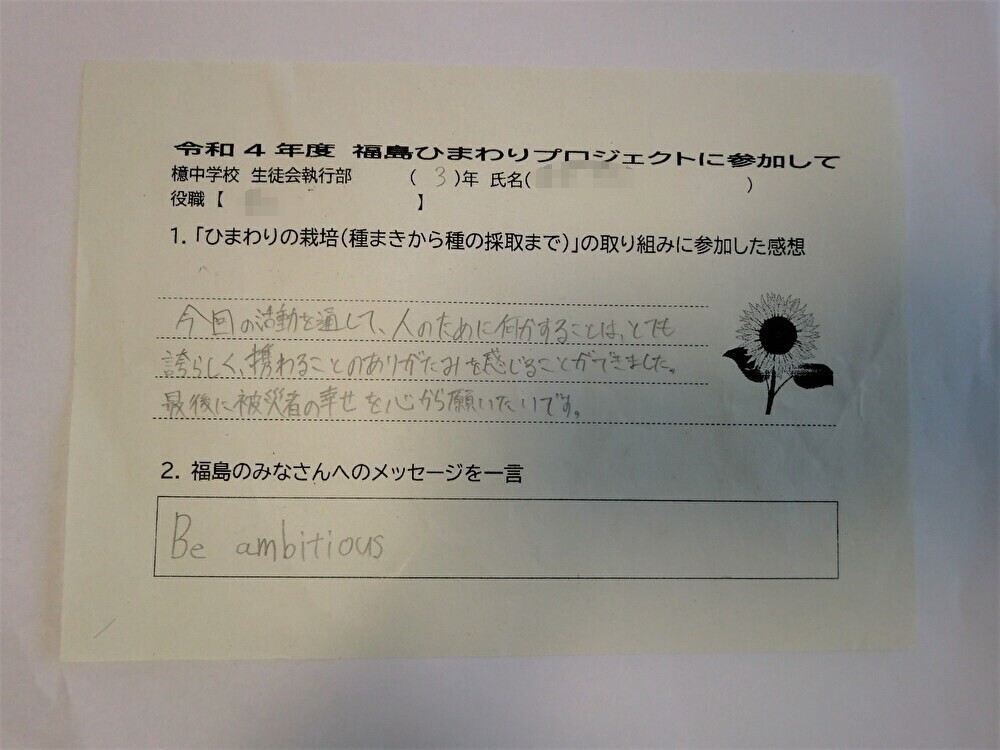 令和4年度 福島ひまわりプロジェクトに参加して
檍中学校 生徒会執行部 (3)年 氏名( )
役職【 】
1.「ひまわりの栽培(種まきから種の採取まで)」の取り組みに参加した感想
今回の活動を通して、人のために何かすることは、とても
誇らしく、携わることのありがたみを感じることができました。
最後に被災者の幸せを心から願いたいです。
2. 福島のみなさんへのメッセージを一言
Be ambitious